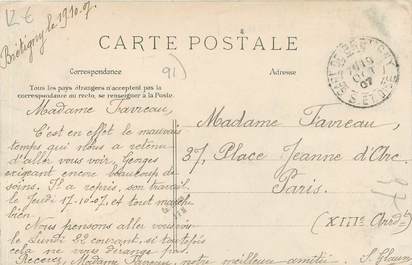 12 €
Brétigny le 19.10.07
CARTE POSTALE
91)
Correspondance
Adresse
Tous les pays étrangers n'acceptent pas la
correspondance au recto, se renseigner à la Poste.
19
OCT
07
Madame Favreau,
C'est en effet le mauvais
temps qui nous a retenu
d'aller vous voir, Georges
exigeant encore beaucoup de
soins. Il a repris son travail
le Jeudi 17-10-07 et tout marche
bien.
Nous pensons aller vous voir
le Lundi 22 courant, si toutefois
cela ne vous dérange pas.
Recevez, Madame Favreau, notre meilleure amitié
Madame Favreau,
37, Place Jeanne d'Arc,
Paris.
(XIIIe Arrdt)